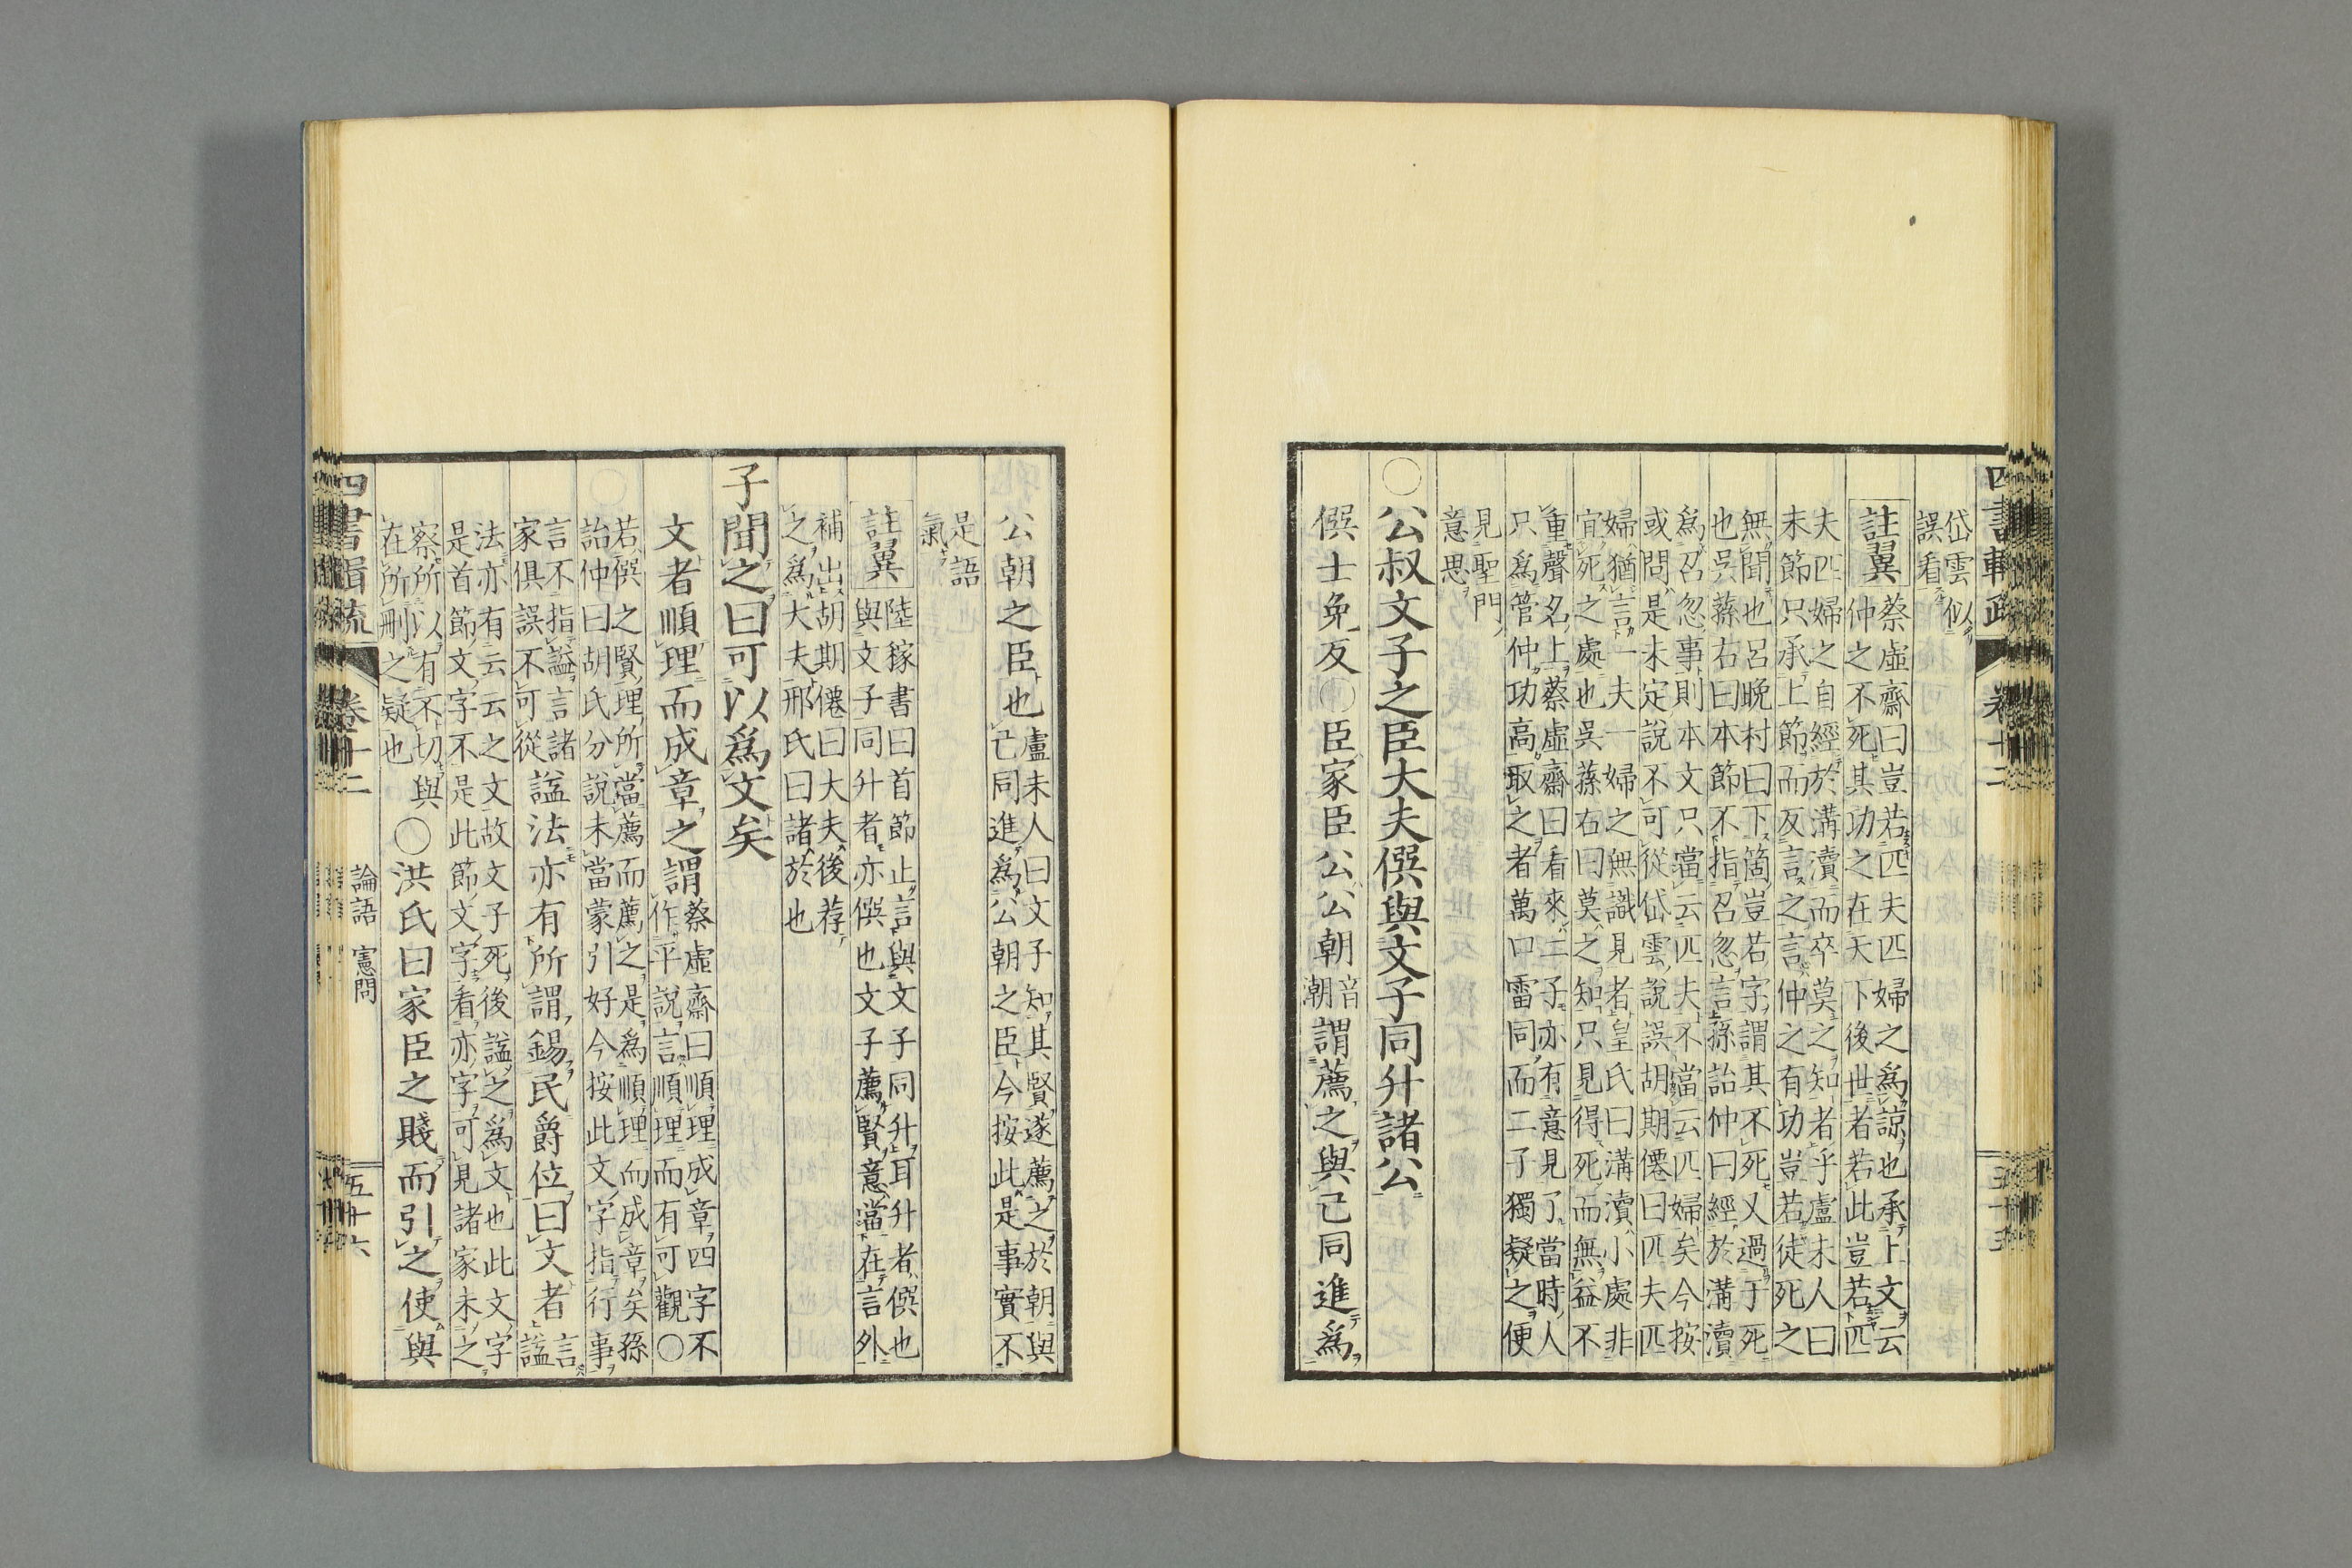 岱雲似
誤看
註翼
蔡虛齋曰豈若匹夫匹婦之爲諒也承上文云
仲之不死其功之在天下後世者若此豈若匹
夫匹婦之自經於溝瀆而卒莫之知者乎盧未人曰
末節只承上節而反言之言仲之有功豈若徒死之
無聞也呂晚村曰下箇豈若字謂其不死又過于死
也吳蓀右曰本節不指召忽言孫詒仲曰經於溝瀆
爲召忽事則本文只當云匹夫不當云匹婦矣今按
或問是未定說不可從岱雲說誤胡期僊曰匹夫匹
婦猶言一夫一婦之無識見者皇氏曰溝瀆小處非
宜死之處也吳蓀右曰莫之知只見得死而無益不
重聲名上蔡虛齋曰看來二子亦有意見了當時人
只爲管仲功高取之者萬口雷同而二子獨疑之便
見聖門
意思
○公叔文子之臣大夫僎與文子同升諸公
僎士免反○臣家臣公公朝音潮謂薦之與己同進爲
公朝之臣也
盧未人曰文子知其賢遂薦之於朝與
己同進爲公朝之臣今按此是事實不
是語
氣
註翼
陸稼書曰首節止言與文子同升耳升者僎也
與文子同升者亦僎也文子薦賢意當在言外
補出胡期僊曰大夫後荐
之爲大夫邢氏曰諸於也
子聞之曰可以爲文矣
文者順理而成章之謂
蔡虛齋曰順理成章四字不
作平說言順理而有可觀○
若僎之賢理所當薦而薦之是爲順理而成章矣孫
詒仲曰胡氏分說未當蒙引好今按此文字指行事
言不指謚言諸
家俱誤不可從
謚法亦有所謂錫民爵位曰文者
言
謚
法亦有云云之文故文子死後謚之爲文也此文字
是首節文字不是此節文字看亦字可見諸家未之
察所以有不切與
在所刪之疑也
○洪氏曰家臣之賤而引之使與
四書輯疏
卷十二
論語 憲問
五十六